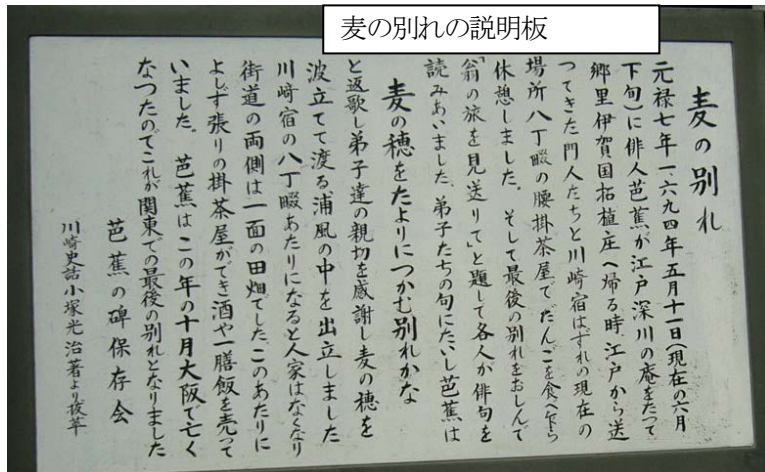 麦の別れの説明板
麦の別れ
元禄七年一、六九四年五月十一日(現在の六月
下旬)に俳人芭蕉が江戸深川の庵をたつて
郷里伊賀国拓植庄へ帰る時、江戸から送
つてきた門人たちと川崎宿はずれの現在の
場所八丁畷の腰掛茶屋で、だんごを食べ乍ら
休憩しました。そして最後の別れをおしんで
「翁の旅を見送りて」と題して各人が俳句を
読みあいました、弟子たちの句にたいし芭蕉は
麦の穂をたよりにつかむ別れかな
と返歌し弟子達の親切を感謝し麦の穂を
波立てて渡る浦風の中を出立しました
川崎宿の八丁畷あたりになると人家はなくなり
街道の両側は一面の田畑でした、このあたりに
よしず張りの掛茶屋ができ酒や一膳飯を売って
いました。芭蕉はこの年の十月大阪で亡く
なつたのでこれが関東での最後の別れとなりました
芭蕉の碑保存会
川崎史話小塚光治著より抜萃